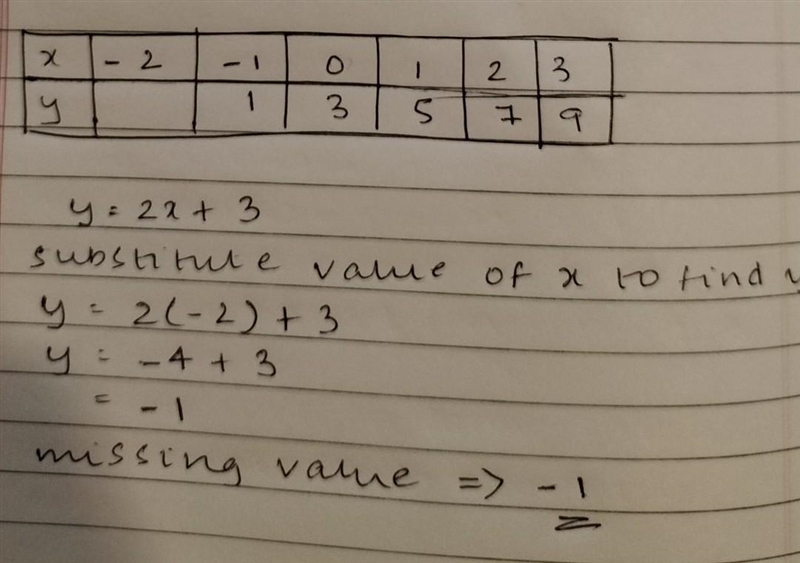 x -2 -1 0 1 2 3
y 1 3 5 7 9
y = 2x + 3
substitute value of x to find y
y = 2(-2) + 3
y = -4 + 3
= -1
missing value => -1